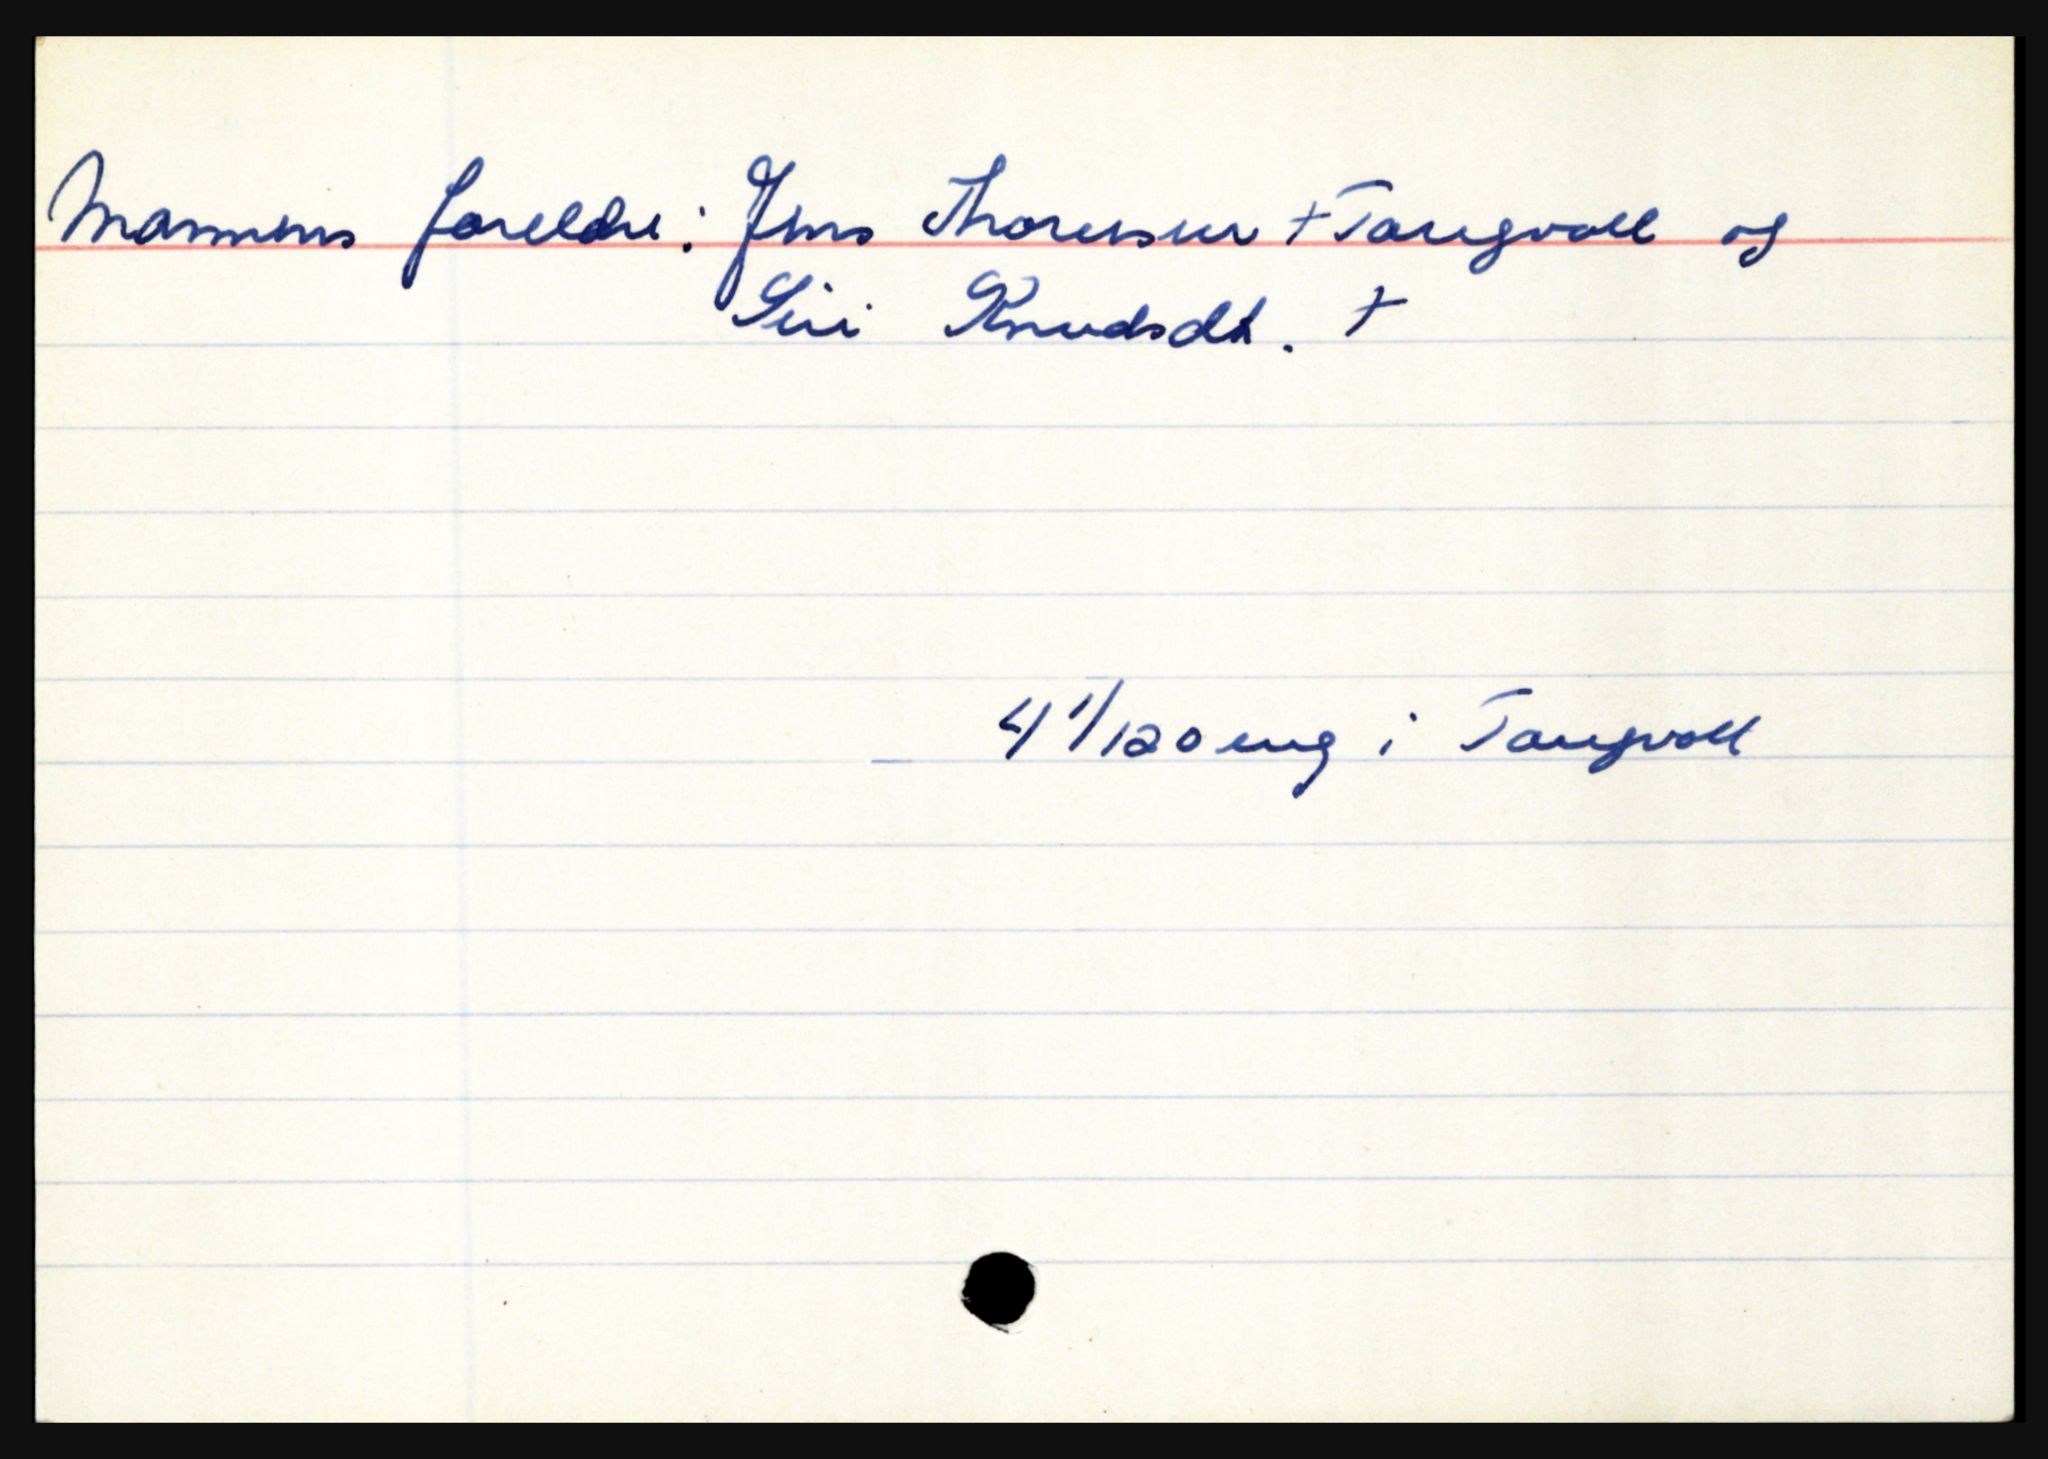 Mannens foreldre: Jens Thoressen + Tangvall og
Siri Knudsdt. +
4 1/120 eng i Tangvall